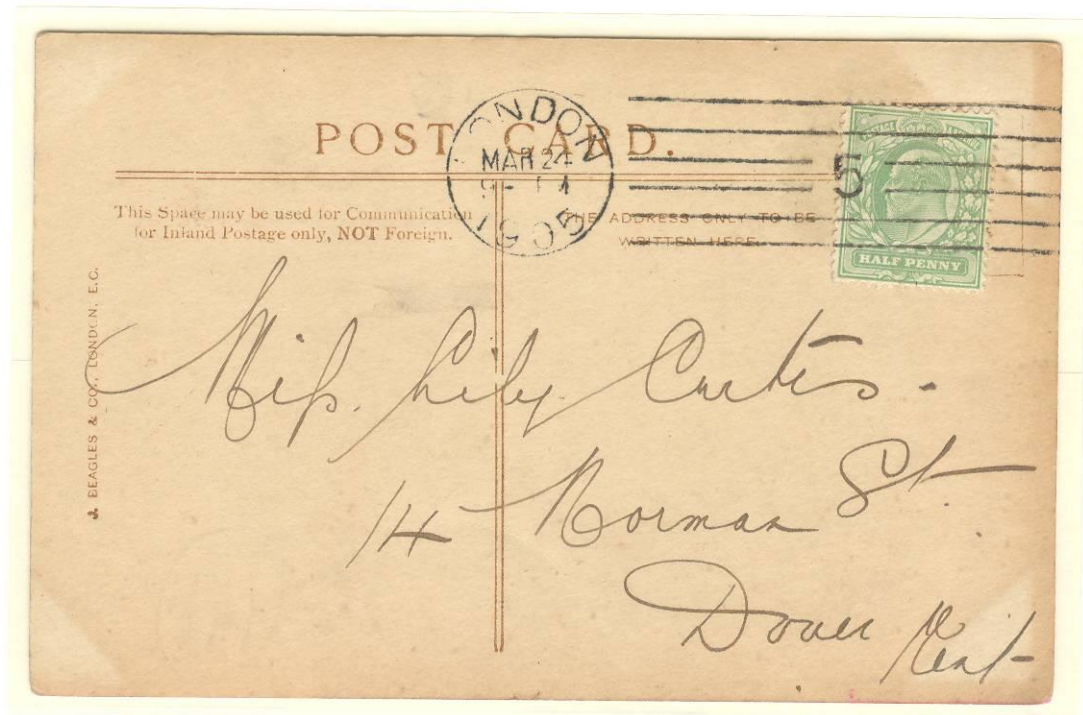 POST CARD.
LONDON
MAR 24
1905
5
HALF PENNY
This Space may be used for Communication
for Inland Postage only, NOT Foreign.
THE ADDRESS ONLY TO BE
WRITTEN HERE
J. BEAGLES & CO., LONDON, E.C.
Miss. Lily Curtis.
14 Norman St.
Dover Kent